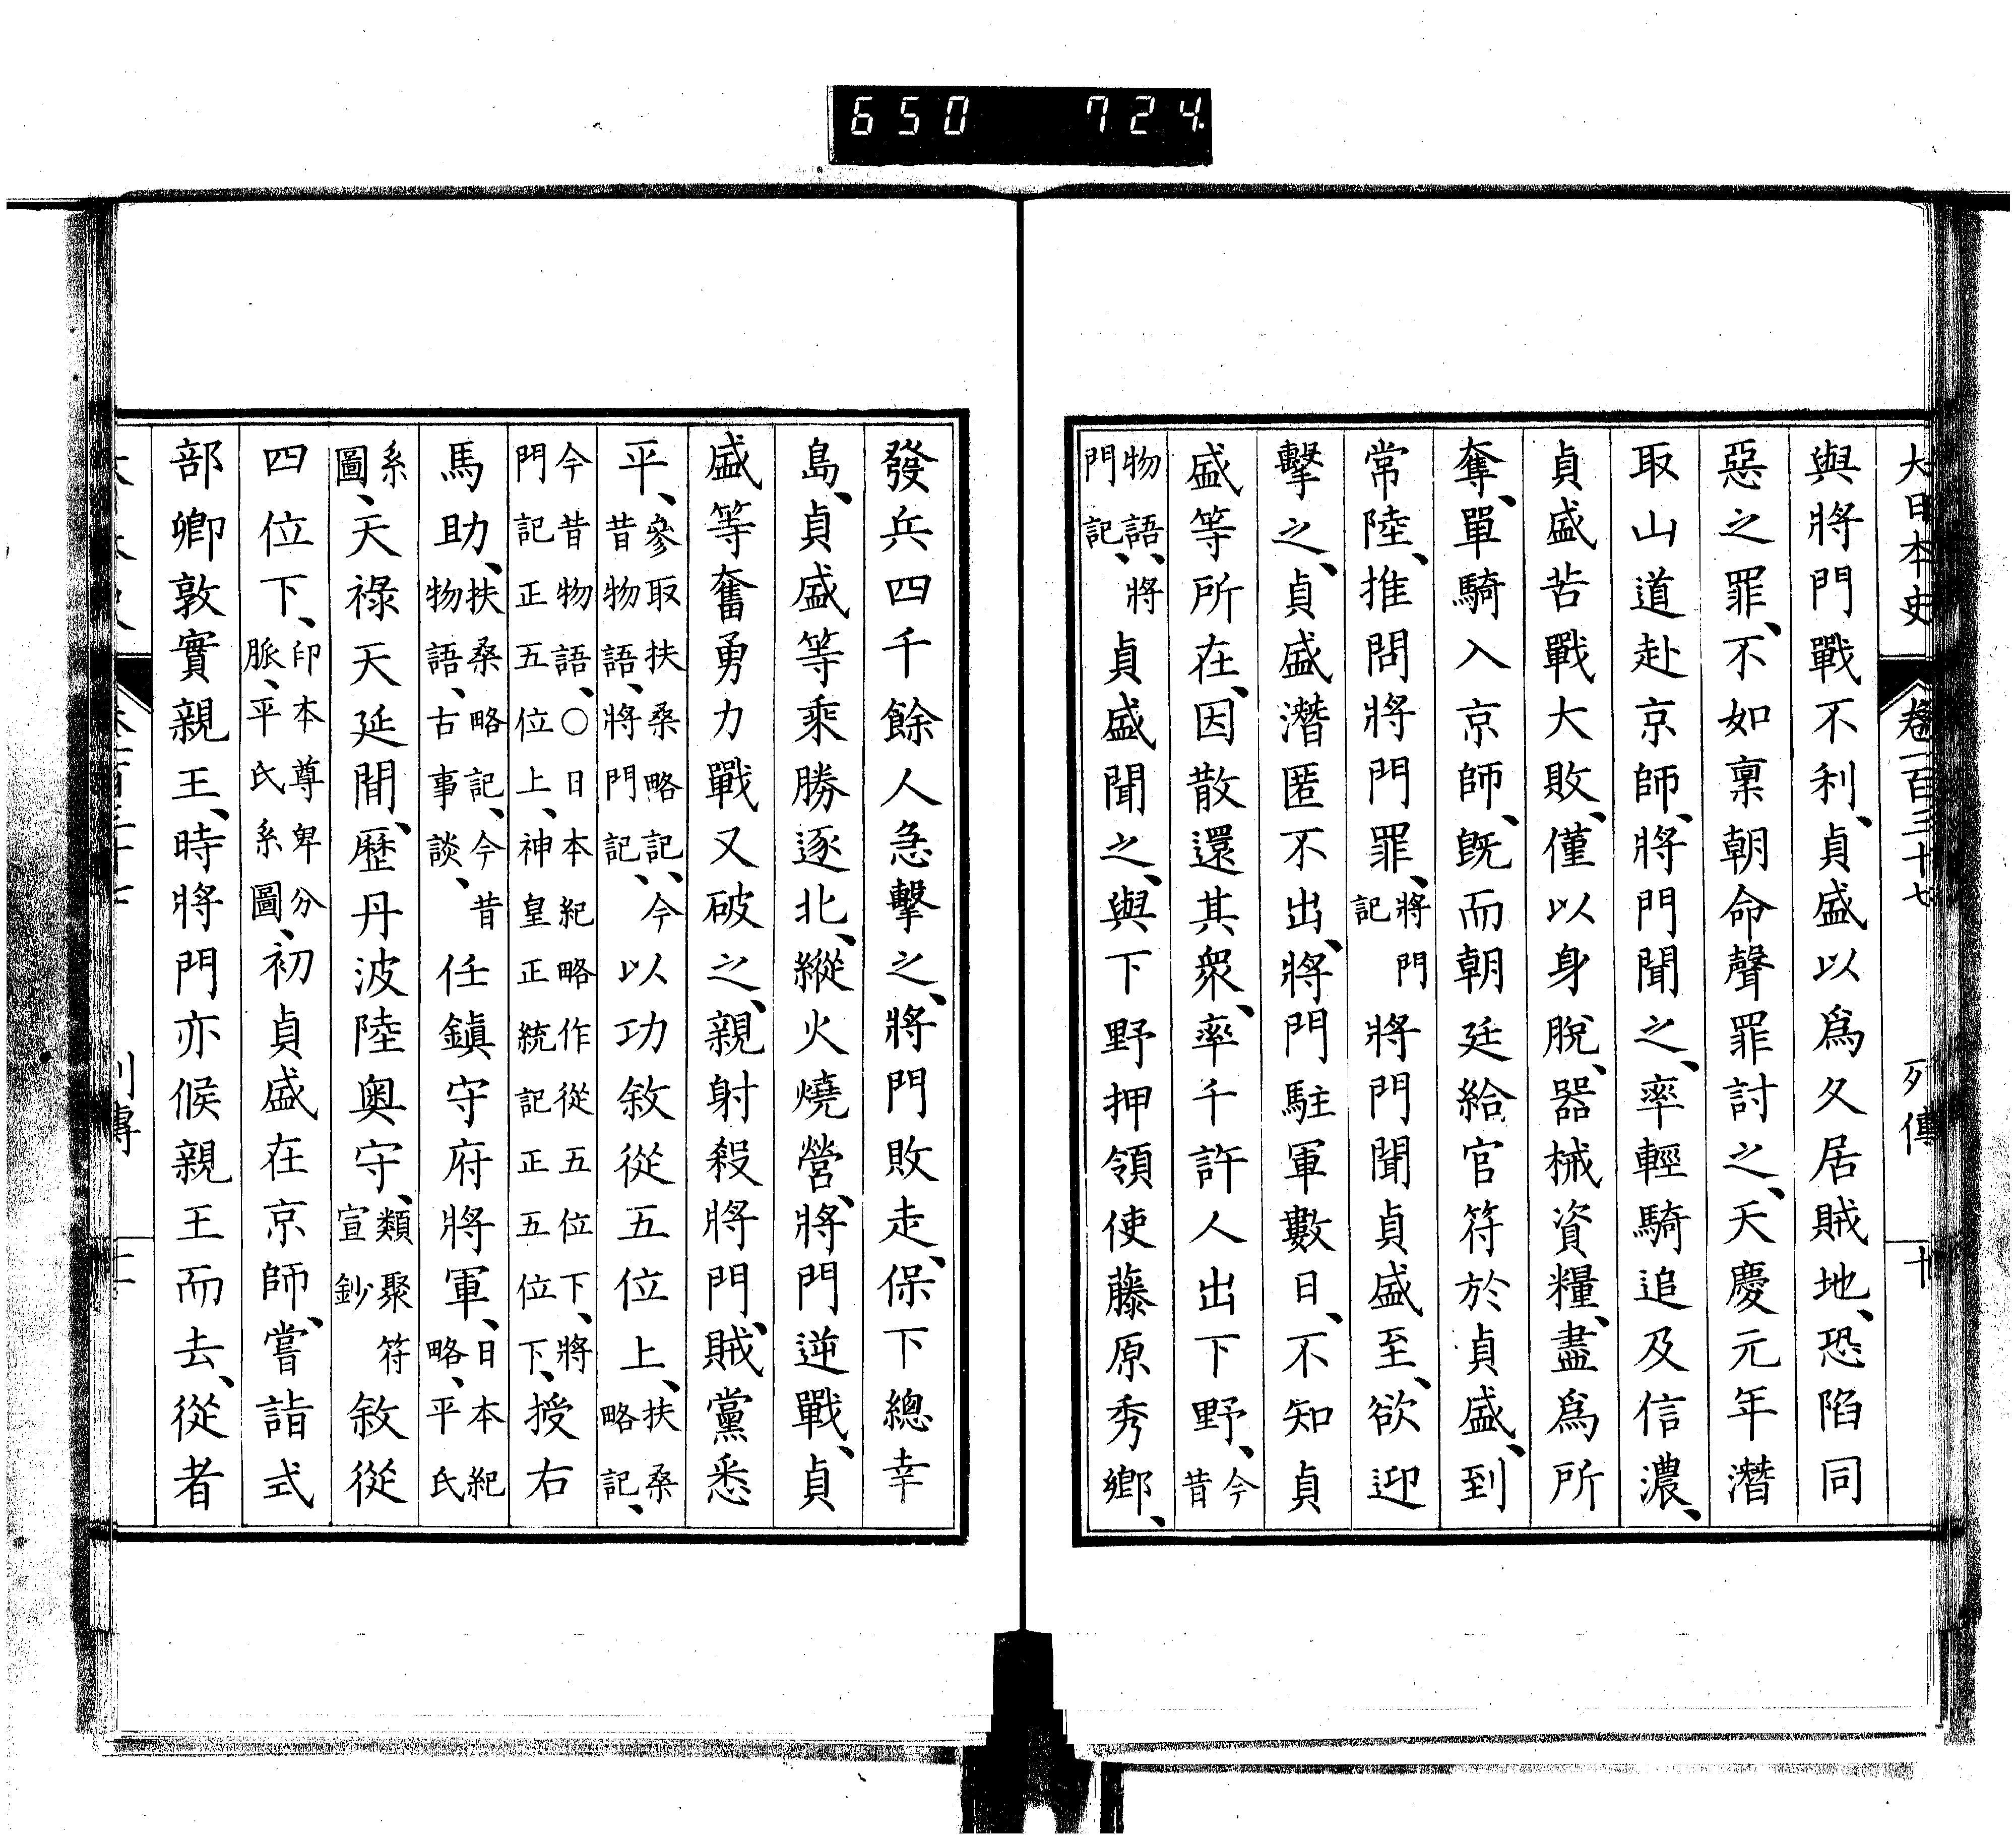 650 724
大日本史 卷一百三十七 列傳 十
與將門戰不利、貞盛以爲久居賊地、恐陷同
惡之罪、不如稟朝命聲罪討之、天慶元年潛
取山道赴京師、將門聞之、率輕騎追及信濃、
貞盛苦戰大敗、僅以身脫、器械資糧、盡爲所
奪、單騎入京師、既而朝廷給官符於貞盛、到
常陸、推問將門罪、將門記將門聞貞盛至、欲迎
擊之、貞盛潛匿不出、將門駐軍數日、不知貞
盛等所在、因散還其衆、率千許人出下野、今昔
物語、將門記、貞盛聞之、與下野押領使藤原秀鄉、
發兵四千餘人急擊之、將門敗走、保下總幸
島、貞盛等乘勝逐北、縱火燒營、將門逆戰、貞
盛等奮勇力戰又破之、親射殺將門、賊黨悉
平、參取扶桑略記、今昔物語、將門記、以功敘從五位上、扶桑略記、
今昔物語、○日本紀略作從五位下、將門記正五位上、神皇正統記正五位下、授右
馬助、扶桑略記、今昔物語、古事談、任鎭守府將軍、日本紀略、平氏
系圖、天祿天延間、歷丹波陸奧守、類聚符宣鈔敘從
四位下、印本尊卑分脈、平氏系圖、初貞盛在京師、嘗詣式
部卿敦實親王、時將門亦候親王而去、從者